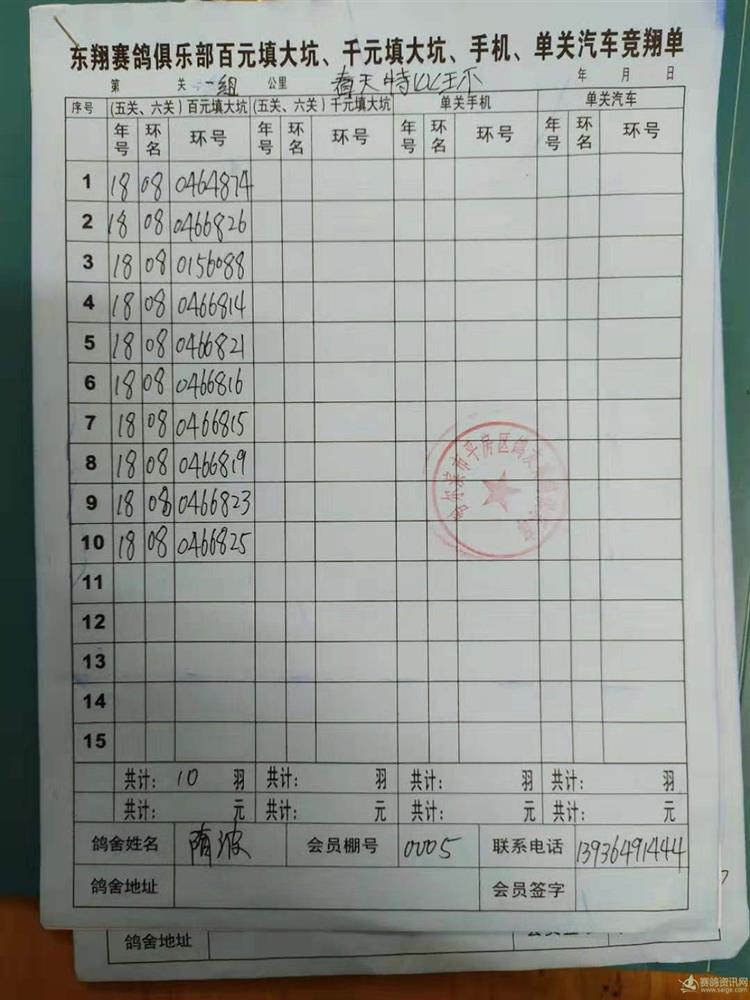 东翔赛鸽俱乐部百元填大坑、千元填大坑、手机、单关汽车竞翔单
第 关 一组 公里 春天特比环 年 月 日
序号 (五关、六关)百元填大坑 (五关、六关)千元填大坑 单关手机 单关汽车
年号 环名 环号 年号 环名 环号 年号 环名 环号 年号 环名 环号
1 18 08 0464874
2 18 08 0466826
3 18 08 0156088
4 18 08 0466814
5 18 08 0466821
6 18 08 0466816
7 18 08 0466815
8 18 08 0466819
9 18 08 0466823
10 18 08 0466825
11
12
13
14
15
共计: 10 羽 共计: 羽 共计: 羽 共计: 羽
共计: 元 共计: 元 共计: 元 共计: 元
鸽舍姓名 隋波 会员棚号 0005 联系电话 13936491444
鸽舍地址 会员签字
鸽舍地址 会员签字
哈尔滨市平房区鸽友
赛鸽资讯网
www.saige.com